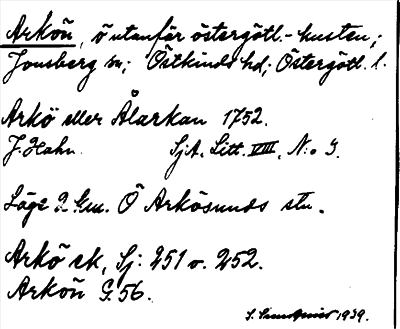 Arkön, ö utanför östergötl.-kusten,;
Jonsberg sn; Östkinds hd; Östergötl. l.
Arkö eller Ålarkan 1752.
J. Hahn. SjA. Litt. VIII, N:o 9.
Läge 2 km. Ö Arkösunds stn.
Arkö ek, Sj: 251 o. 252.
Arkön G. 56.
S. 1939.